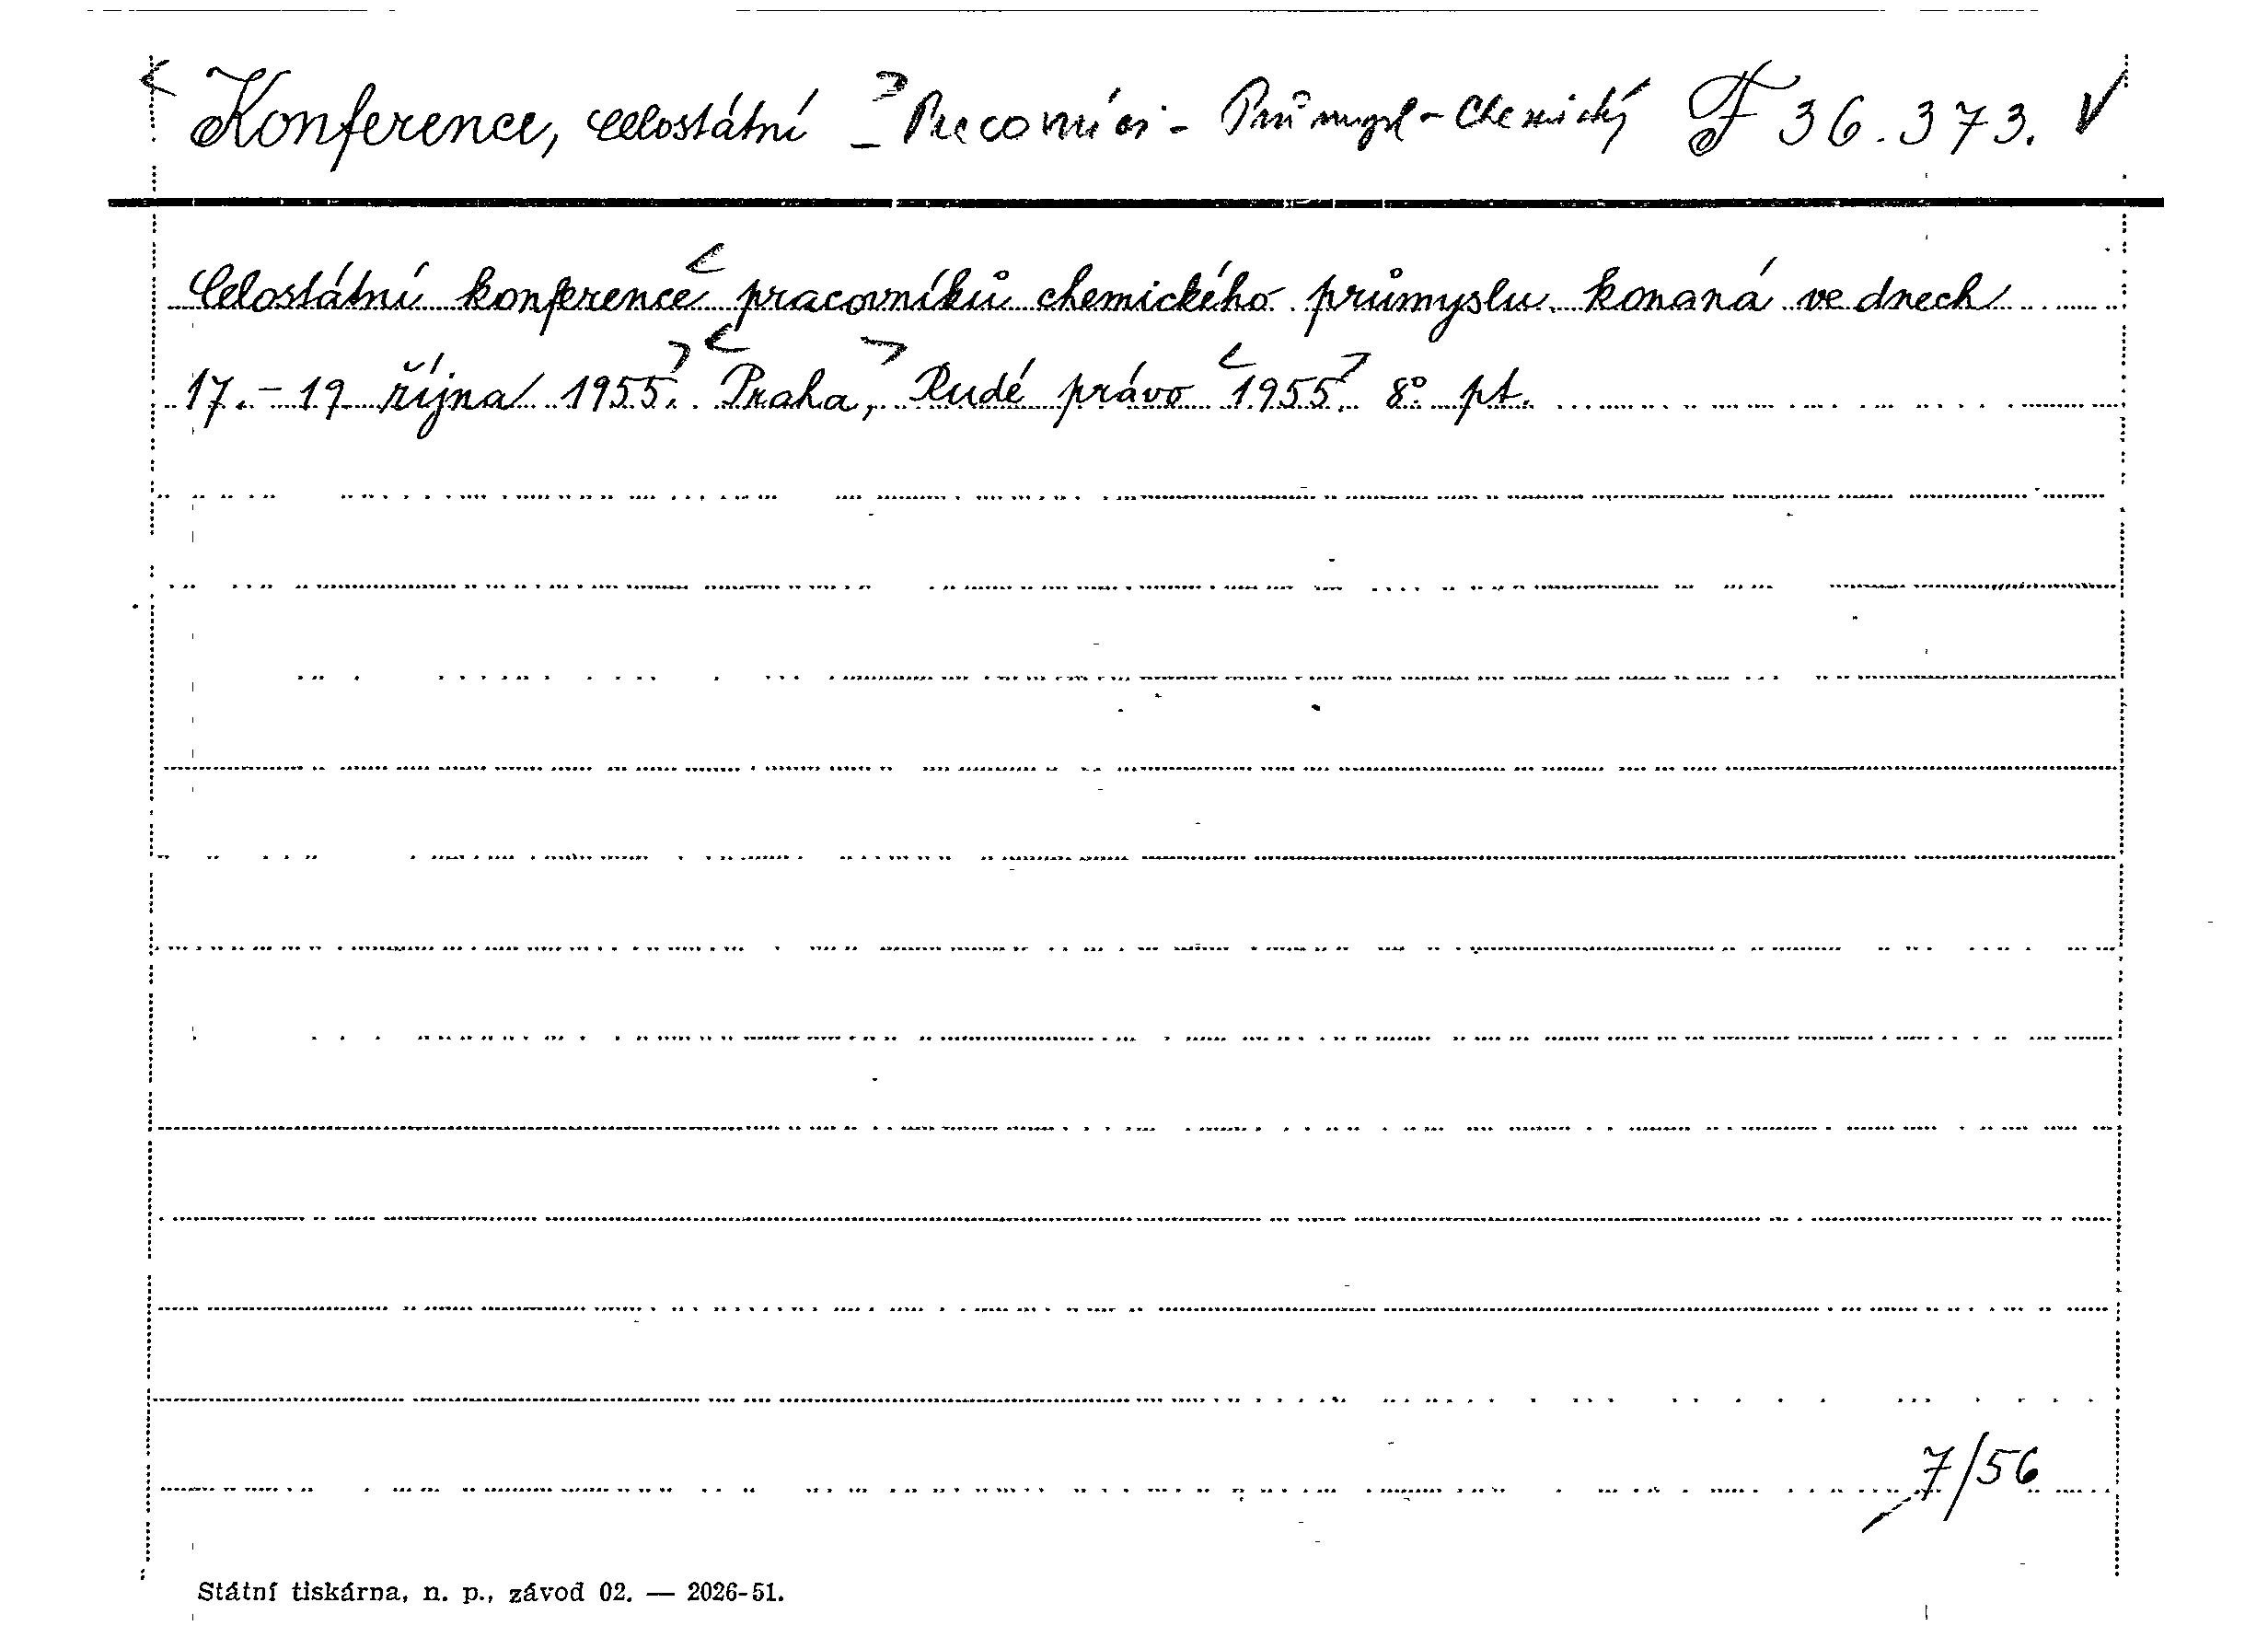 < Konference, celostátní > – Pracovníci - Průmysl - Chemický F 36.373. V
Celostátní konference < pracovníků chemického průmyslu konaná ve dnech
17. – 19 října 1955. > < Praha, > Rudé právo < 1955. > 8° pt.
7/56
Státní tiskárna, n. p., závod 02. — 2026-51.